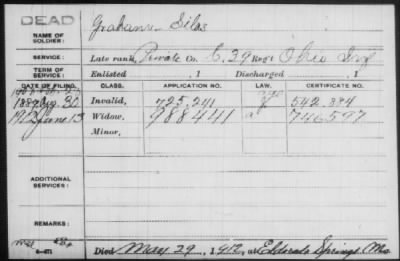 DEAD
NAME OF SOLDIER: Graham Silas
SERVICE: Late rank, Private Co. C. 39 Reg't Ohio Inf
TERM OF SERVICE: Enlisted , 1 Discharged , 1
DATE OF FILING. CLASS. APPLICATION NO. LAW. CERTIFICATE NO.
1889 Aug. 30 Invalid, 725,241 542.384
1912 June 13 Widow, 988441 a 746597
Minor,
ADDITIONAL SERVICES:
REMARKS:
Died May 29, 1912, at Eldorado Springs, Mo